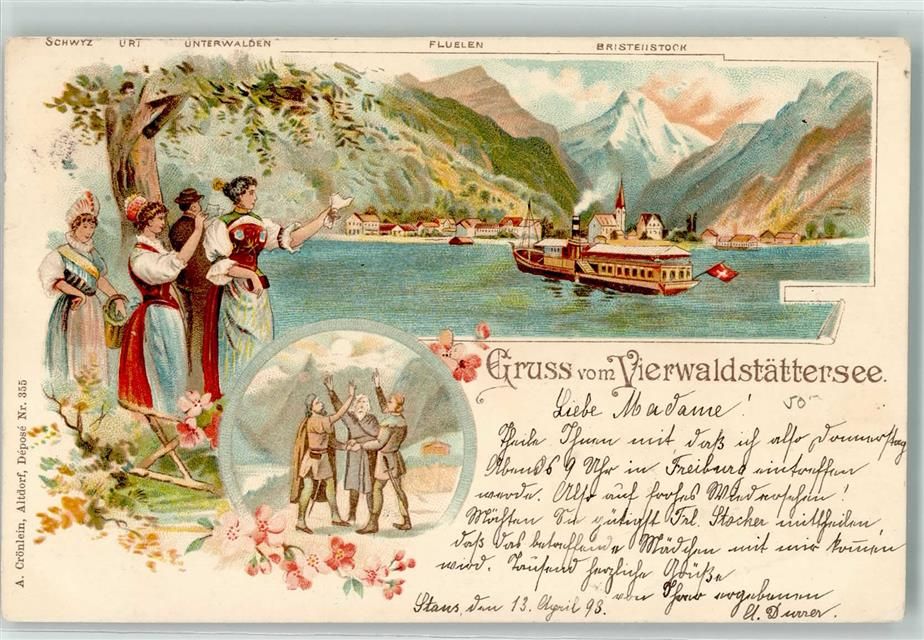 SCHWYZ URI UNTERWALDEN FLUELEN BRISTENSTOCK
Gruss vom Vierwaldstättersee.
Liebe Madame!
Theile Ihnen mit daß ich also Donnerstag
Abends 9 Uhr in Freiburg eintreffen
werde. Also auf frohes Wiedersehen!
Möchten Sie gütigst Frl. Stocher mittheilen
daß das betreffende Mädchen mit mir kommen
wird. Tausend herzliche Grüße
von Ihrer ergebenen
Stans, den 13. April 98. A. Durrer.
A. Crönlein, Altdorf, Déposé Nr. 355